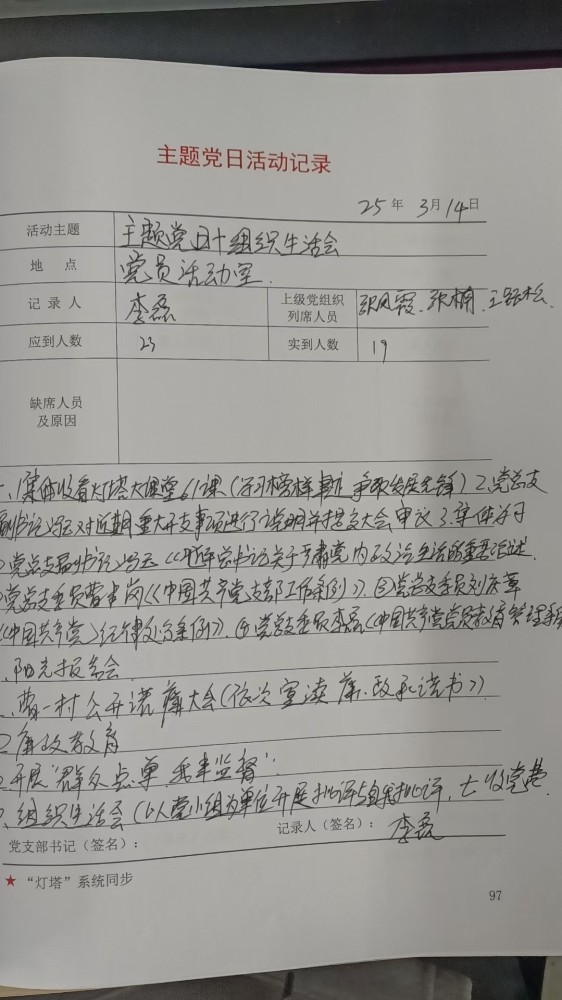 主题党日活动记录
25年 3月14日
活动主题 主题党日+组织生活会
地 点 党员活动室
记录人 李磊 上级党组织列席人员 张凤霞、张楠、王
应到人数 23 实到人数 19
缺席人员及原因
一、1集体收看灯塔大课堂61课(学习榜样事迹 争取发展先锋)2、党总支
副书记 对近期重大开支事项进行了说明并提交大会审议 3、集体学习
党总支副书记 《 总书记关于严肃党内政治生活的重要论述
党总支委员曹 岗《中国共产党支部工作条例》.③党总支委员刘庆
《中国共产党 纪律处分条例》.④党总支委员李磊《中国共产党党员教育管理
阳光报告会
一村公开诺廉大会(依次宣读廉政承诺书》)
二廉政教育
开展"群众点单 我来监督".
组织生活会(以党小组为单位开展批评与自我批评,七收党费
党支部书记(签名): 记录人(签名): 李磊
★“灯塔”系统同步
97